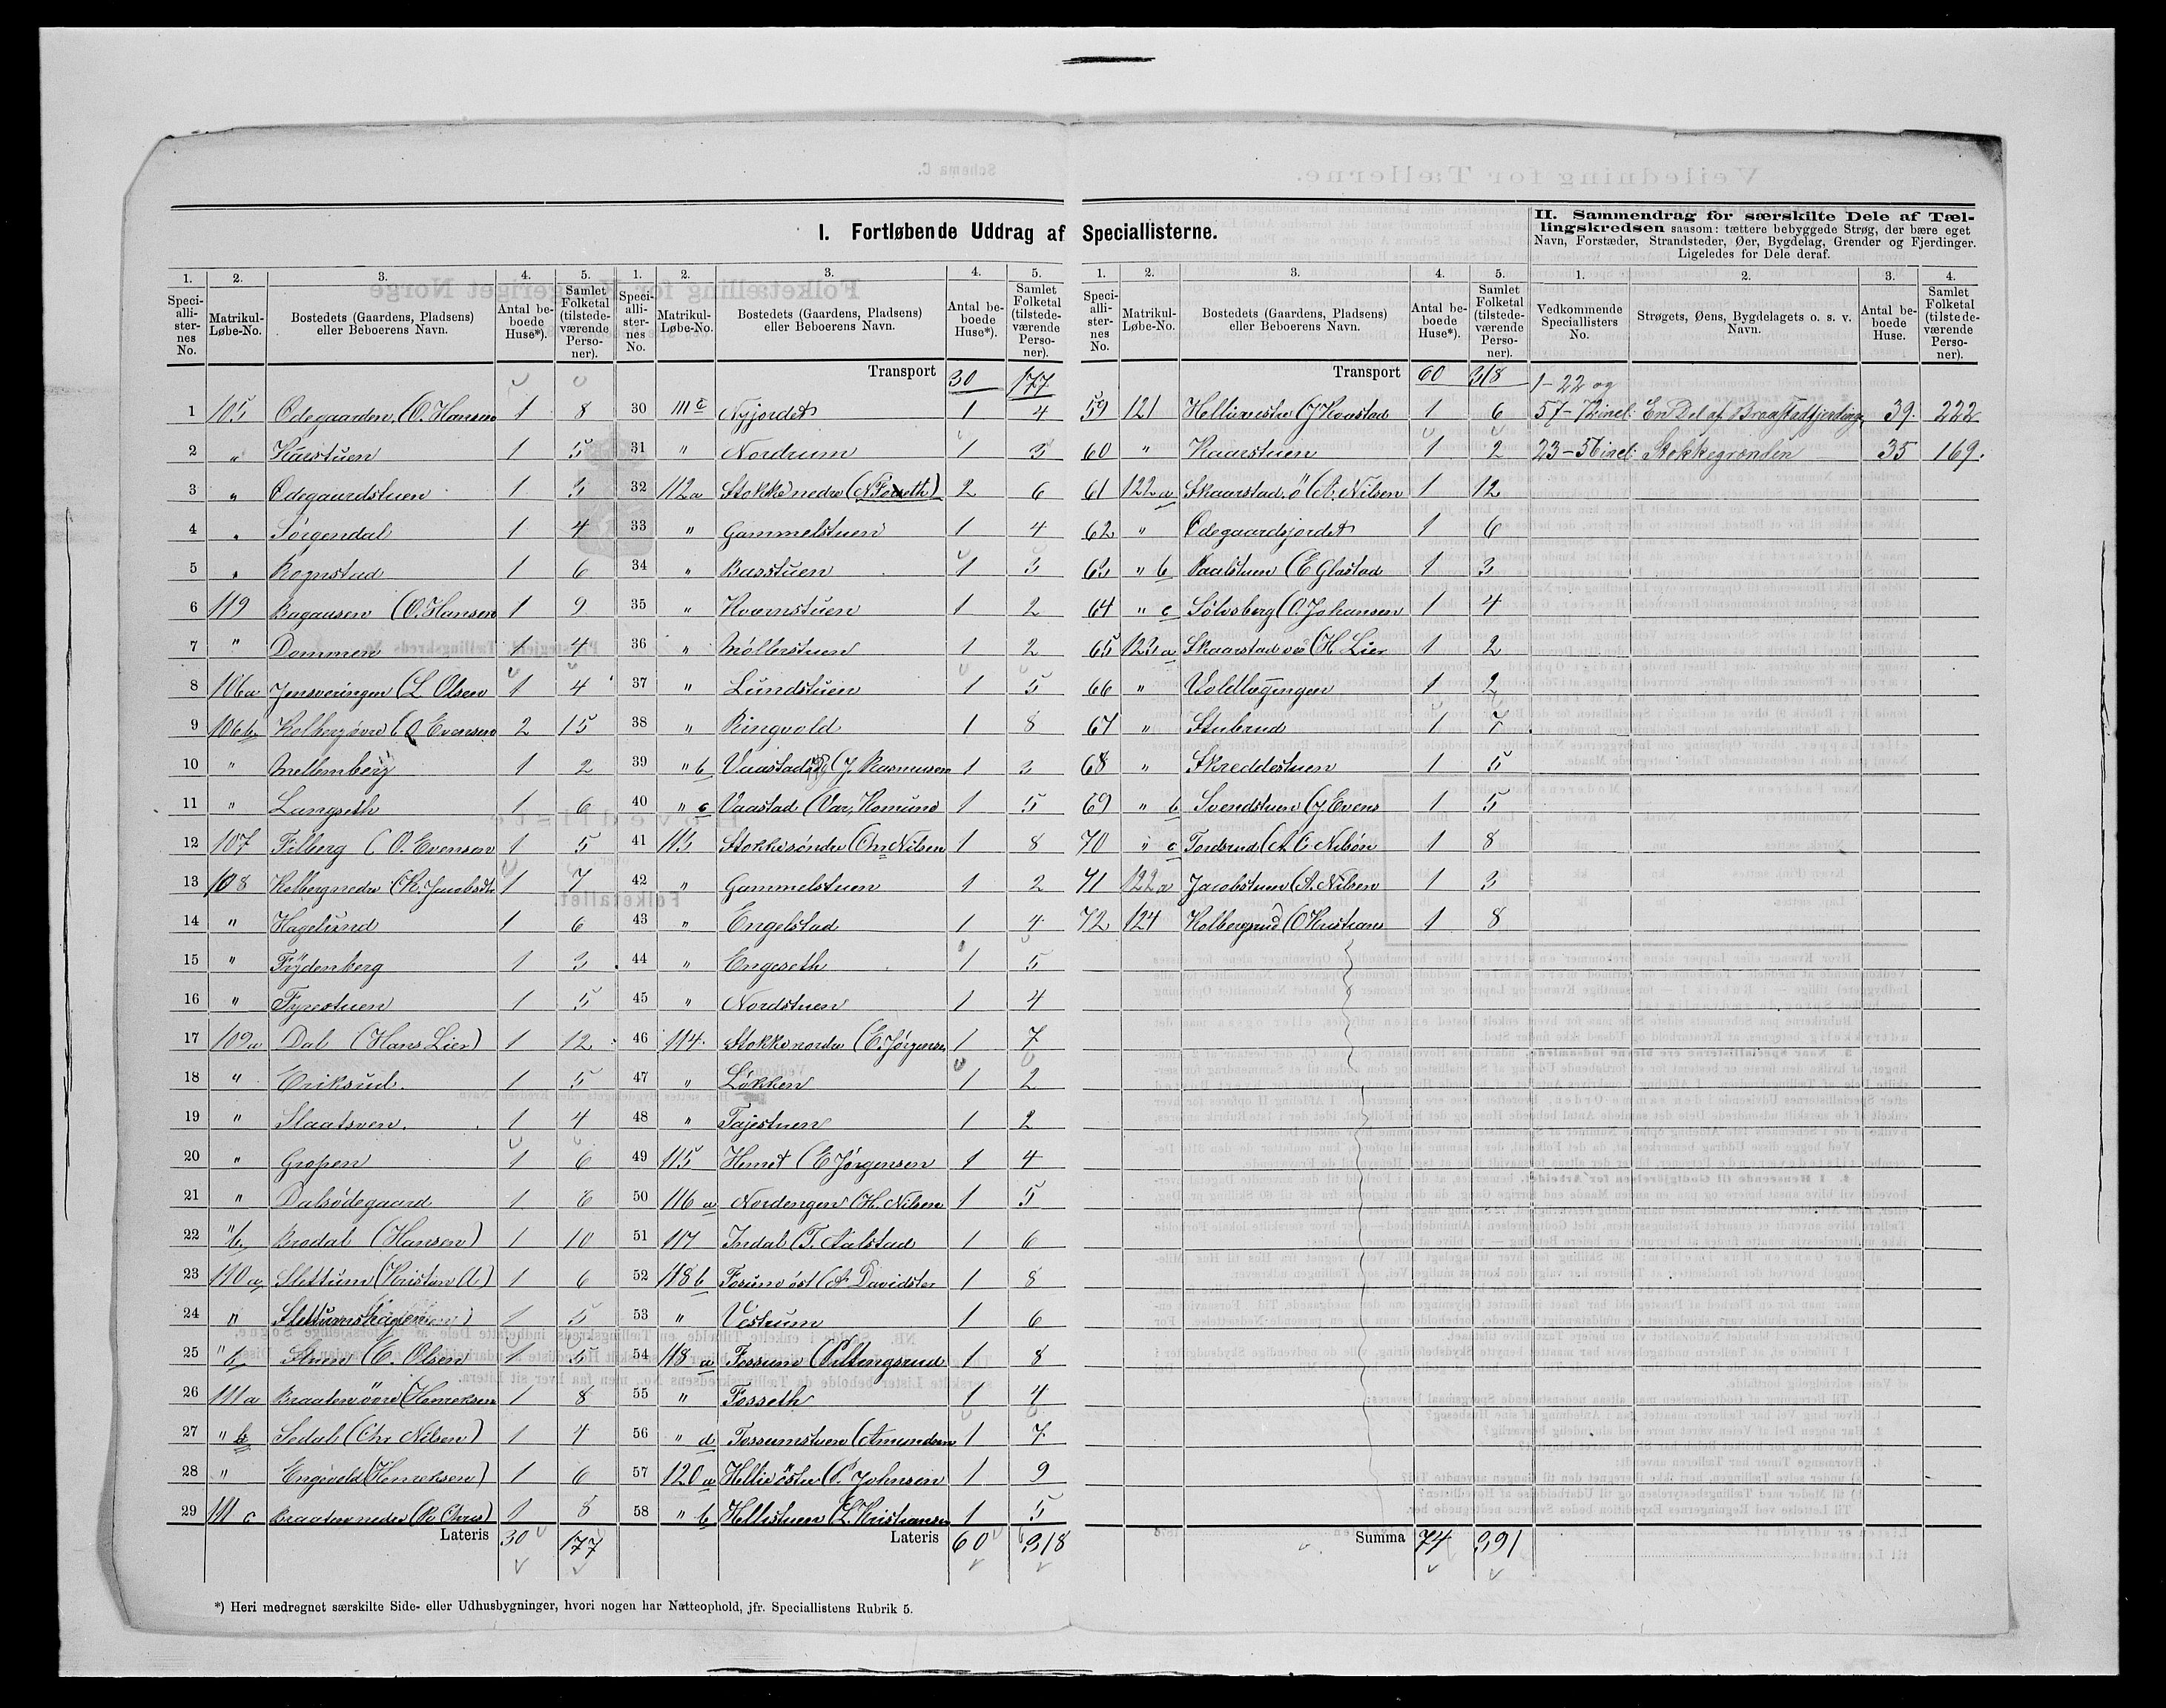 I. Fortløbende Uddrag af Speciallisterne.
1. 2. 3. 4. 5.
Speciallisternes No. Matrikul-Løbe-No. Bostedets (Gaardens, Pladsens) eller Beboerens Navn. Antal beboede Huse*). Samlet Folketal (tilstedeværende Personer).
1 105 Ødegaarden, (O. Hansen 1 8
2 " Kaestuen 1 5
3 " Ødegaardstuen 1 3
4 " Sørgendal 1 4
5 " Rognstad 1 6
6 119 Bagaasen (O. Hansen 1 9
7 " Dammen 1 4
8 106a Jensveringen (L Olsen 1 4
9 106b Kolberg øvre (O Evensen 2 15
10 " Mellemberg 1 2
11 " Langseth 1 6
12 107 Filberg (O. Evensen 1 5
13 108 Kolberg nedre (K. Jacobsdtr 1 7
14 " Hagelund 1 6
15 " Frydenberg 1 3
16 " Fyrestuen 1 5
17 109a Dal (Hans Lier) 1 12
18 " Eriksrud. 1 5
19 " Slaatsven. 1 4
20 " Gropen 1 6
21 " Dalsødegaard 1 6
22 " b Brodal (Hansen) 1 10
23 110a Slettum (Kristen 1 6
24 " Slettumshagen 1 5
25 " b Stuen (E. Olsen 1 5
26 111a Braaten øvre (Henreksen 1 8
27 " b Sedal (Chr Nilsen) 1 4
28 " Engevold (Henreksen) 1 6
29 111 c Braaten nedre 1 8
Lateris 30 177
1. 2. 3. 4. 5.
Speciallisternes No. Matrikul-Løbe-No. Bostedets (Gaardens, Pladsens) eller Beboerens Navn. Antal beboede Huse*). Samlet Folketal (tilstedeværende Personer).
Transport 30 177
30 111 c Nyjordet 1 4
31 " Nordrum 1 3
32 112a Stokke nedre (N Foseth) 2 6
33 " Gammelstuen 1 4
34 " Basstuen 1 3
35 " Kvernstuen 1 2
36 " Møllerstuen 1 2
37 " Lundstuen 1 5
38 " Ringvold 1 8
39 " b Vaastad (J. Rasmusen 1 3
40 " c Vaastad 1 5
41 113 Stokke søndre (Chr Nilsen 1 8
42 " Gammelstuen 1 2
43 " Engelstad 1 4
44 " Engeseth 1 5
45 " Nordstuen 1 4
46 114. Stokke nordre (E. Jørgensen 1 7
47 " Løkken 1 2
48 " Tajestuen 1 2
49 115 Hemet (E Jørgensen 1 4
50 116 a Nordengen (H. Nilsen 1 5
51 117 Indal (T. Aalstad 1 6
52 118b Fosum øst (A Davidster 1 8
53 " Vestrum 1 6
54 118 a Fossum (P. Llengsrud 1 8
55 " Fosseth 1 4
56 " d Fossumstuen (Amundsen 1 7
57 120 a Hellie østre (P. Johnsen 1 9
58 " b Hellistuen (L. Kristiansen 1 5
Lateris 60 318
*) Heri medregnet særskilte Side- eller Udhusbygninger, hvori nogen har Natteophold, jfr. Speciallistens Rubrik 5.
1. 2. 3. 4. 5.
Speciallisternes No. Matrikul-Løbe-No. Bostedets (Gaardens, Pladsens) eller Beboerens Navn. Antal beboede Huse*). Samlet Folketal (tilstedeværende Personer).
Transport 60 318
59 121 Hellie vestre (J Kvastad 1 6
60 " Kaarstuen 1 2
61 122 a Skaarstad. ø (A. Nilsen 1 12
62 " Ødegaardsjordet 1 6
63 " b Vaalstuen (E Glastad 1 3
64 " c Sølvsberg (O. Johansen 1 4
65 123 a Skaarstad ve (H. Lier 1 2
66 " Voldlægingen 1 2
67 " Stubrud 1 7
68 " Skreddestuen 1 5
69 " b Svendstuen (J. Evens 1 5
70 " c Tordsrud (A C. Nilsøn 1 8
71 122a Jacobstuen (A. Nilsen 1 3
72 124 Kolbergsrud (O Kristians 1 8
Summa 74 391
II. Sammendrag for særskilte Dele af Tællingskredsen saasom: tættere bebyggede Strøg, der bære eget Navn, Forstæder, Strandsteder, Øer, Bygdelag, Grender og Fjerdinger. Ligeledes for Dele deraf.
1. 2. 3. 4.
Vedkommende Speciallisters No. Strøgets, Øens, Bygdelagets o. s. v. Navn. Antal beboede Huse. Samlet Folketal (tilstedeværende Personer).
1-22 og
57-72 incl. En Del af Braastadfjerding 39. 222
23-56 incl. Stokkegrenden 35 169.